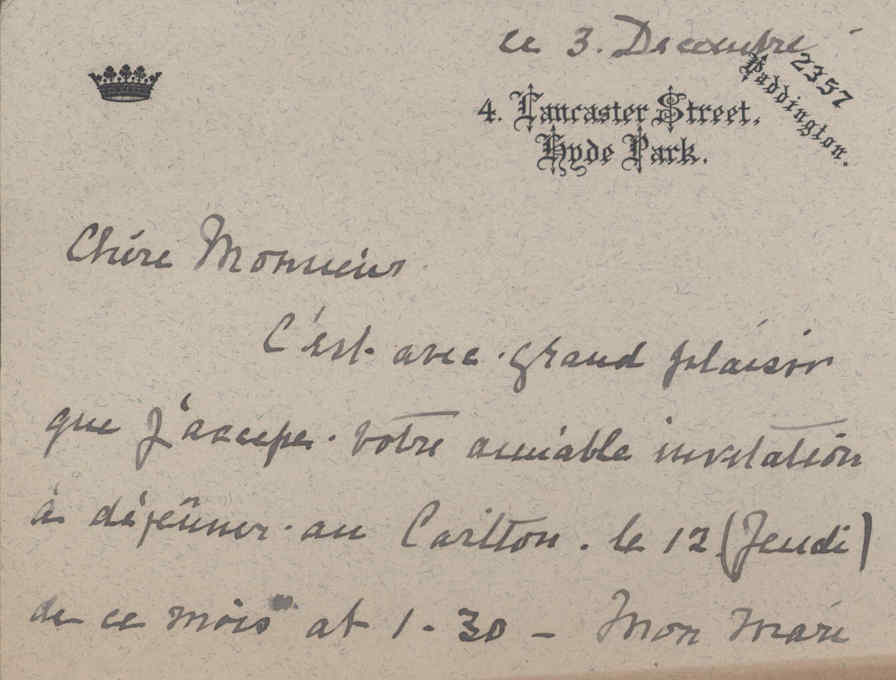 ce 3. Decembre
2357
Paddington.
4. Lancaster Street,
Hyde Park.
Chère Monsieur
C'est avec grand plaisir
que j'accepe votre amiable invitation
à déjeûner au Carlton. le 12 (Jeudi)
de ce mois at 1-30 - Mon Mari